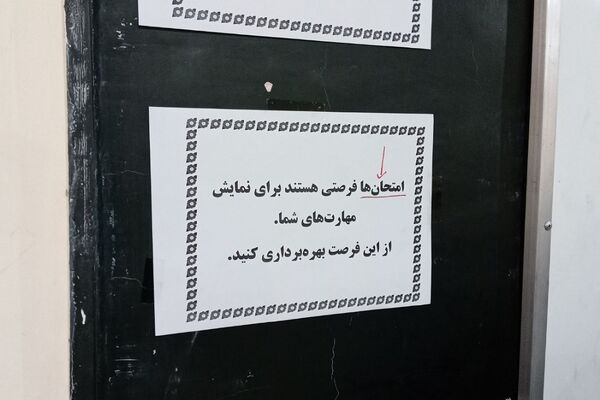 امتحان‌ها فرصتی هستند برای نمایش
مهارت‌های شما.
از این فرصت بهره‌برداری کنید.